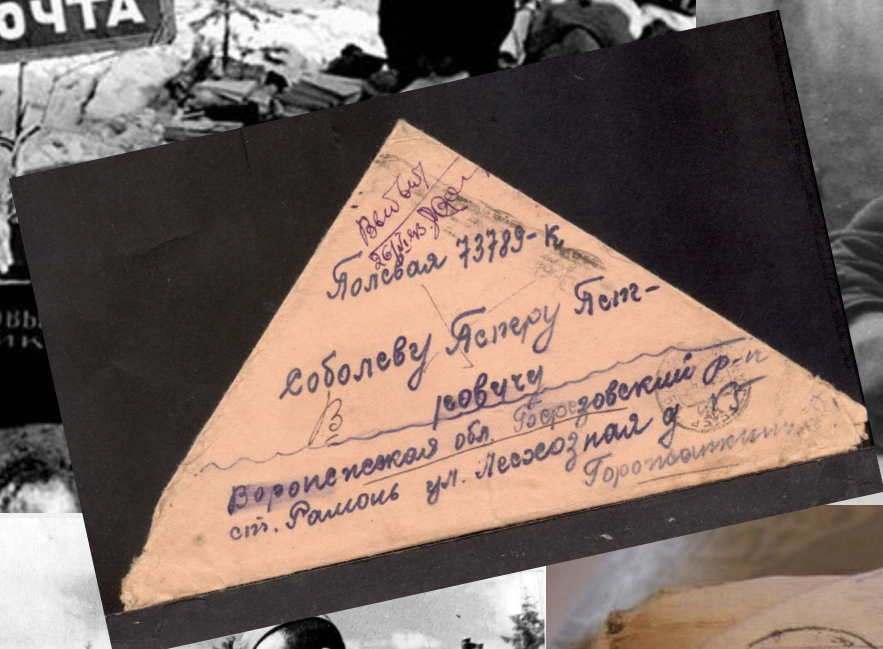 ОЧТА
26/VI 43.
Полевая 73789-К
Соболеву Петру Пет-
ровичу
В
Воронежская обл. Березовский р-н
ст. Рамонь ул. Лесхозная д